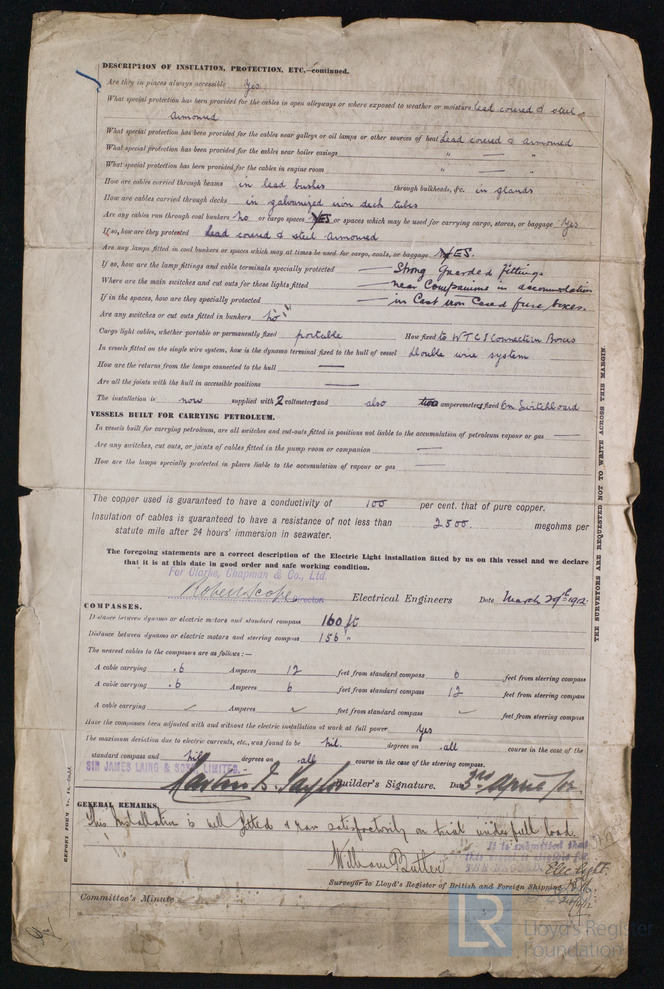 DESCRIPTION OF INSULATION, PROTECTION, ETC.—continued.
Are they in places always accessible Yes
What special protection has been provided for the cables in open alleyways or where exposed to weather or moisture Lead covered & steel
armoured
What special protection has been provided for the cables near galleys or oil lamps or other sources of heat Lead covered & armoured
What special protection has been provided for the cables near boiler casings " — "
What special protection has been provided for the cables in engine room " — "
How are cables carried through beams in lead bushes through bulkheads, &c. in glands
How are cables carried through decks in galvanized iron deck tubes
Are any cables run through coal bunkers No or cargo spaces YES or spaces which may be used for carrying cargo, stores, or baggage Yes
If so, how are they protected Lead covered & steel armoured
Are any lamps fitted in coal bunkers or spaces which may at times be used for cargo, coals, or baggage YES.
If so, how are the lamp fittings and cable terminals specially protected — Strong Guarded fittings
Where are the main switches and cut outs for these lights fitted — near Companions in accommodation
If in the spaces, how are they specially protected — in Cast iron Cased fuse boxes.
Are any switches or cut outs fitted in bunkers no
Cargo light cables, whether portable or permanently fixed portable How fixed to W T C I Connection Boxes
In vessels fitted on the single wire system, how is the dynamo terminal fixed to the hull of vessel double wire system
How are the returns from the lamps connected to the hull —
Are all the joints with the hull in accessible positions —
The installation is now supplied with 2 voltmeters and also two amperemeters fixed On Switchboard
VESSELS BUILT FOR CARRYING PETROLEUM.
In vessels built for carrying petroleum, are all switches and cut-outs fitted in positions not liable to the accumulation of petroleum vapour or gas —
Are any switches, cut outs, or joints of cables fitted in the pump room or companion —
How are the lamps specially protected in places liable to the accumulation of vapour or gas —
The copper used is guaranteed to have a conductivity of 100 per cent. that of pure copper.
Insulation of cables is guaranteed to have a resistance of not less than 2500 megohms per
statute mile after 24 hours' immersion in seawater.
The foregoing statements are a correct description of the Electric Light installation fitted by us on this vessel and we declare
that it is at this date in good order and safe working condition.
For Clarke, Chapman & Co., Ltd.
Director Electrical Engineers Date March 29th 1912
COMPASSES.
Distance between dynamo or electric motors and standard compass 160 ft
Distance between dynamo or electric motors and steering compass 156 "
The nearest cables to the compasses are as follows:—
A cable carrying .6 Amperes 12 feet from standard compass 6 feet from steering compass
A cable carrying .6 Amperes 6 feet from standard compass 12 feet from steering compass
A cable carrying Amperes feet from standard compass feet from steering compass
Have the compasses been adjusted with and without the electric installation at work at full power Yes
The maximum deviation due to electric currents, etc., was found to be nil. degrees on all course in the case of the
standard compass and nil degrees on all course in the case of the steering compass.
SIR JAMES LAING & SONS, LIMITED.
Builder's Signature. Date 3rd April /12
GENERAL REMARKS.
This Installation is well fitted & ran satisfactorily on trial under full load.
It is submitted that
William Butler
THE RECORD. Elec Light.
Surveyor to Lloyd's Register of British and Foreign Shipping
Committee's Minute
THE SURVEYORS ARE REQUESTED NOT TO WRITE ACROSS THIS MARGIN.
LR Lloyd's Register
Foundation